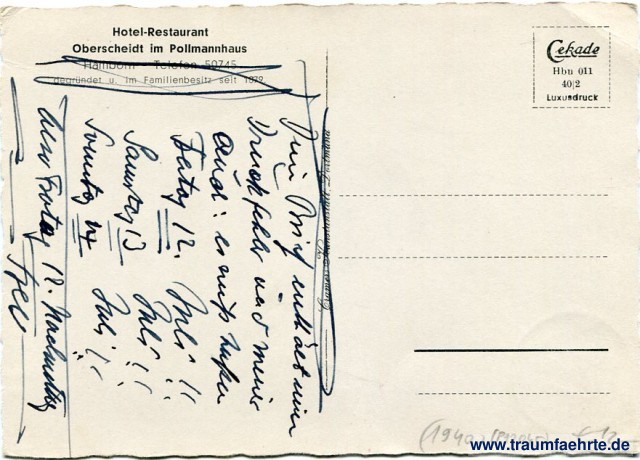 Hotel-Restaurant
Oberscheidt im Pollmannhaus
Hamborn - Telefon 50745
gegründet u. im Familienbesitz seit 1872
Cekade
Hbu 011
40|2
Luxusdruck
Brief enthält einen
Druckfehler und meine
es muß heißen
Freitag 12. Juli !!
Samstag 13 Juli !!
Sonntag 14 Juli !!
Also Freitag 12. Nachmittag
www.traumfaehrte.de